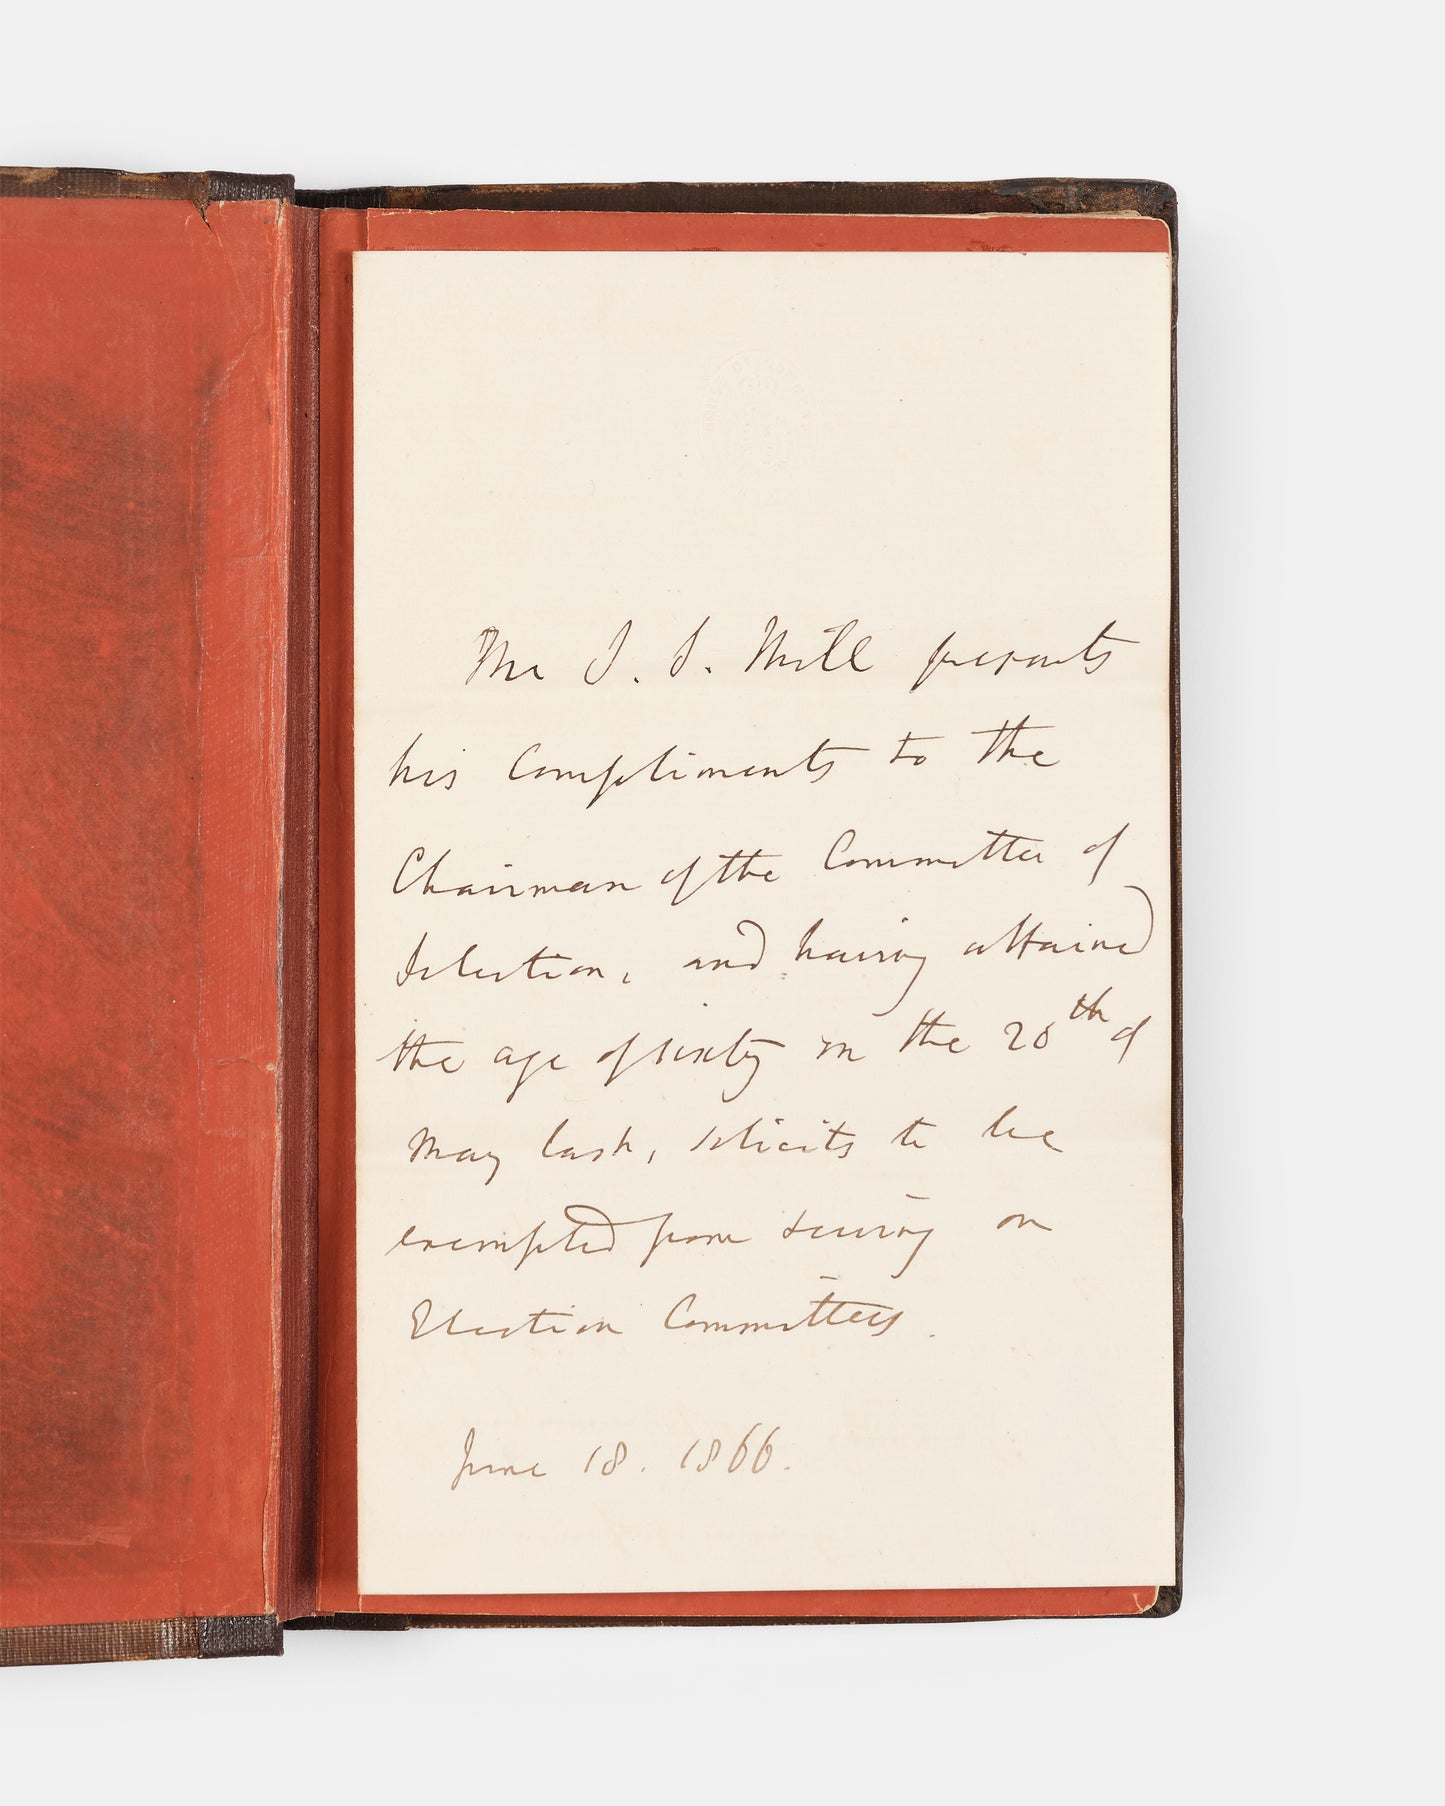 Mr J. S. Mill presents
his Compliments to the
Chairman of the Committee of
Selection, and having attained
the age of sixty on the 20th of
May last, solicits to be
exempted from serving on
Election Committees.
June 18. 1866.